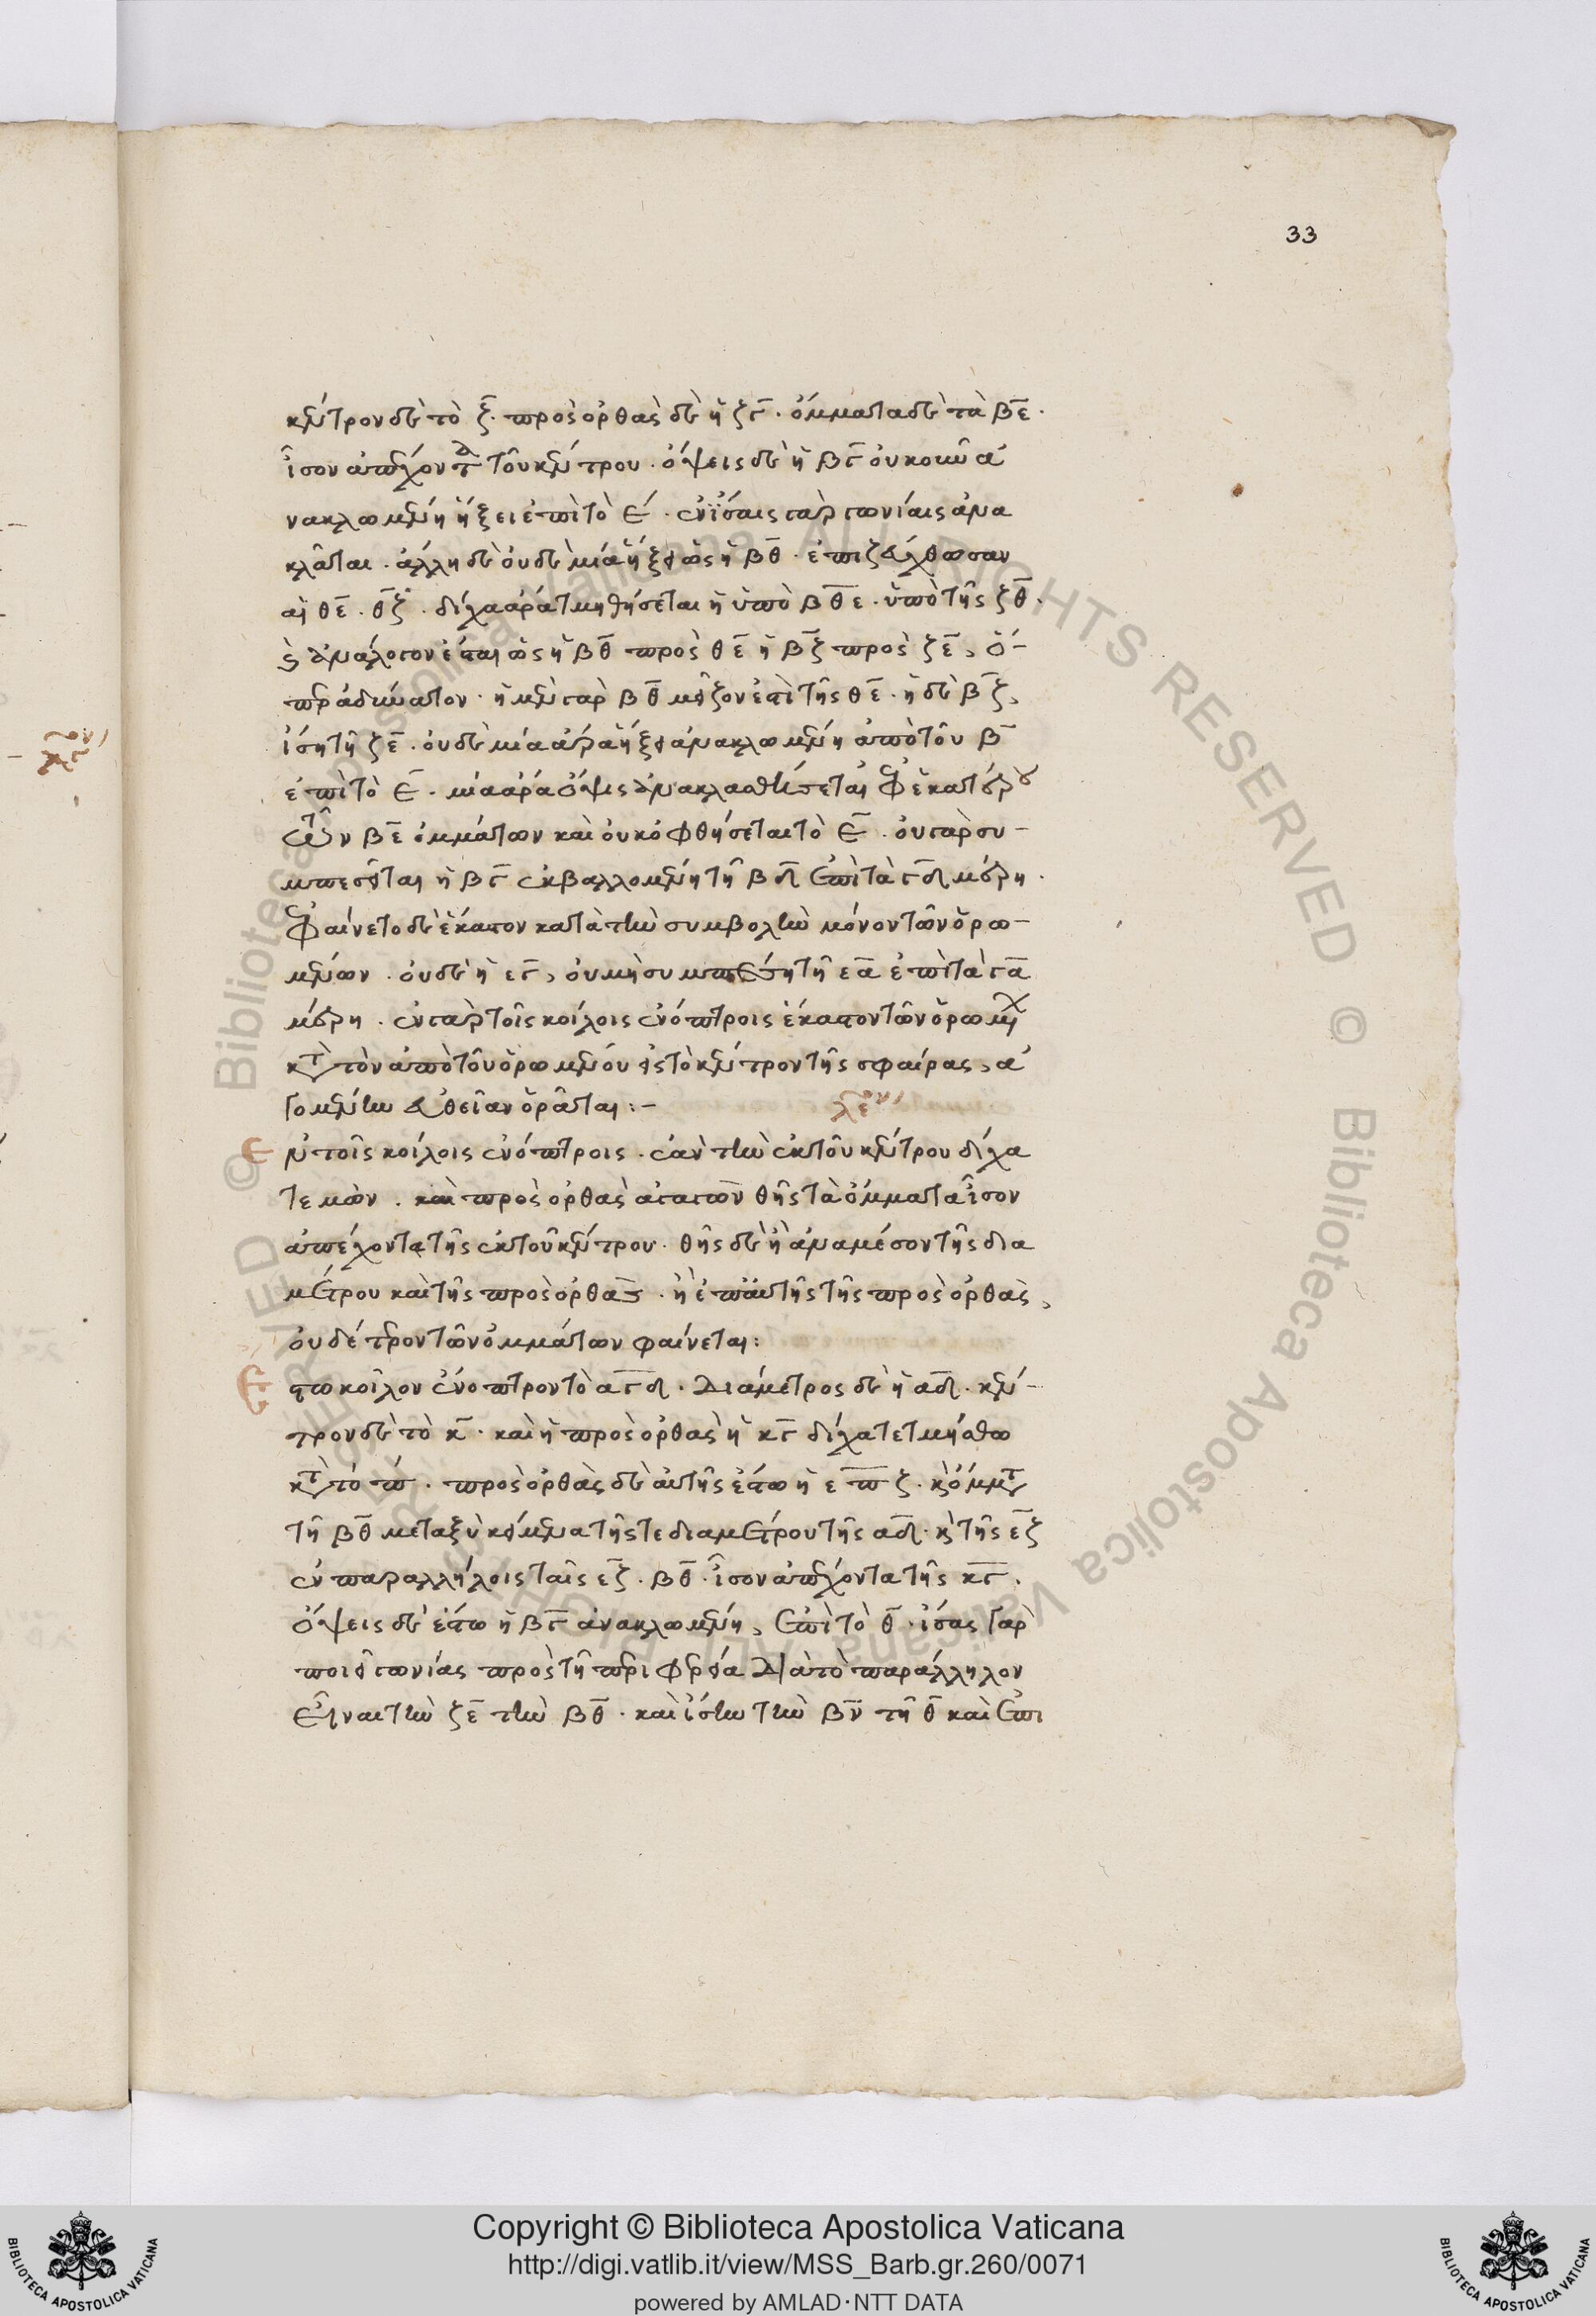 33
κέντρον δὲ τὸ ζ̅. πρὸς ὀρθὰς δὲ ἡ ζ̅γ̅. ὄμματα δὲ τὰ β̅ε̅.
ἴσον ἀπέχοντα τοῦ κέντρου. ὄψεις δὲ ἡ β̅γ̅ οὐκοῦν ἀ
νακλωμένη ἥξει ἐπὶ τὸ ε̅. ἐν ἴσαις γὰρ γωνίαις ἀνα
κλᾶται. ἄλλη δὲ οὐδὲ μία ἥξει ὡς ἡ β̅θ̅. ἐπιζεύχθωσαν
αἱ θ̅ε̅. θ̅ζ̅. δίχα ἄρα τμηθήσεται ἡ ὑπὸ β̅θ̅ε̅. ὑπὸ τῆς ζ̅θ̅.
καὶ ἀνάλογον ἔσται ὡς ἡ β̅θ̅ πρὸς θ̅ε̅ ἡ β̅ζ̅ πρὸς ζ̅ε̅, ὅ
περ ἀδύνατον. ἡ μὲν γὰρ β̅θ̅ μεῖζον ἐστὶ τῆς θ̅ε̅. ἡ δὲ β̅ζ̅,
ἴση τῇ ζ̅ε̅. οὐδὲ μία ἄρα ἥξει ἀνακλωμένη ἀπὸ τοῦ β̅
ἐπὶ τὸ ε̅. μία ἄρα ὄψις ἀνακλασθήσεται ἀφ' ἑκατέρου
τῶν β̅ε̅ ὀμμάτων καὶ οὐκ ὀφθήσεται τὸ ε̅. οὐ γὰρ συ
μπεσεῖται ἡ β̅γ̅ ἐκβαλλομένη τῇ β̅δ̅ ἐπὶ τὰ γ̅δ̅ μέρη.
ἐφαίνετο δὲ ἕκαστον κατὰ τὴν συμβολὴν μόνον τῶν ὁρω
μένων. οὐδὲ ἡ ε̅γ̅, οὐ μὴ συμπέσῃ τῇ ε̅α̅ ἐπὶ τὰ γ̅α̅
μέρη. ἐν γὰρ τοῖς κοίλοις ἐνόπτροις ἕκαστον τῶν ὁρωμένων
κατὰ τὸν ἀπὸ τοῦ ὁρωμένου εἰς τὸ κέντρον τῆς σφαίρας, ἀ
γομένην εὐθεῖαν ὁρᾶται:-
Ἐν τοῖς κοίλοις ἐνόπτροις. ἐὰν τὴν ἐκ τοῦ κέντρου δίχα
τεμὼν. καὶ πρὸς ὀρθὰς ἀγαγὼν θῇς τὰ ὄμματα ἴσον
ἀπέχοντα τῆς ἐκ τοῦ κέντρου. θῇς δὲ ἢ ἀναμέσον τῆς δια
μέτρου καὶ τῆς πρὸς ὀρθάς. ἢ ἐπ' αὐτῆς τῆς πρὸς ὀρθὰς,
οὐδέτερον τῶν ὀμμάτων φαίνεται:
Ἔστω κοῖλον ἔνοπτρον τὸ α̅γ̅δ̅. Διάμετρος δὲ ἡ α̅δ̅. κέν
τρον δὲ τὸ κ̅. καὶ ἡ πρὸς ὀρθὰς ἡ κ̅γ̅ δίχα τετμήσθω
κατὰ τὸ π̅. πρὸς ὀρθὰς δὲ αὐτῆς ἔστω ἡ ε̅π̅ζ̅. καὶ ὄμματα
τῇ β̅θ̅ μεταξὺ κείμενα τῆς τε διαμέτρου τῆς α̅δ̅. καὶ τῆς ε̅ζ̅
ἐν παραλλήλοις ταῖς ε̅ζ̅. β̅θ̅. ἴσον ἀπέχοντα τῆς κ̅γ̅.
ὄψεις δὲ ἔστω ἡ β̅γ̅ ἀνακλωμένη, ἐπὶ τὸ θ̅. ἴσας γὰρ
ποιεῖ γωνίας πρὸς τῇ περιφερείᾳ Διὰ τὸ παράλληλον
εἶναι τὴν ζ̅ε̅ τὴν β̅θ̅. καὶ ἴστω τὴν β̅ν̅ τῇ θ̅ καὶ ἐπι
Copyright © Biblioteca Apostolica Vaticana
http://digi.vatlib.it/view/MSS_Barb.gr.260/0071
powered by AMLAD·NTT DATA